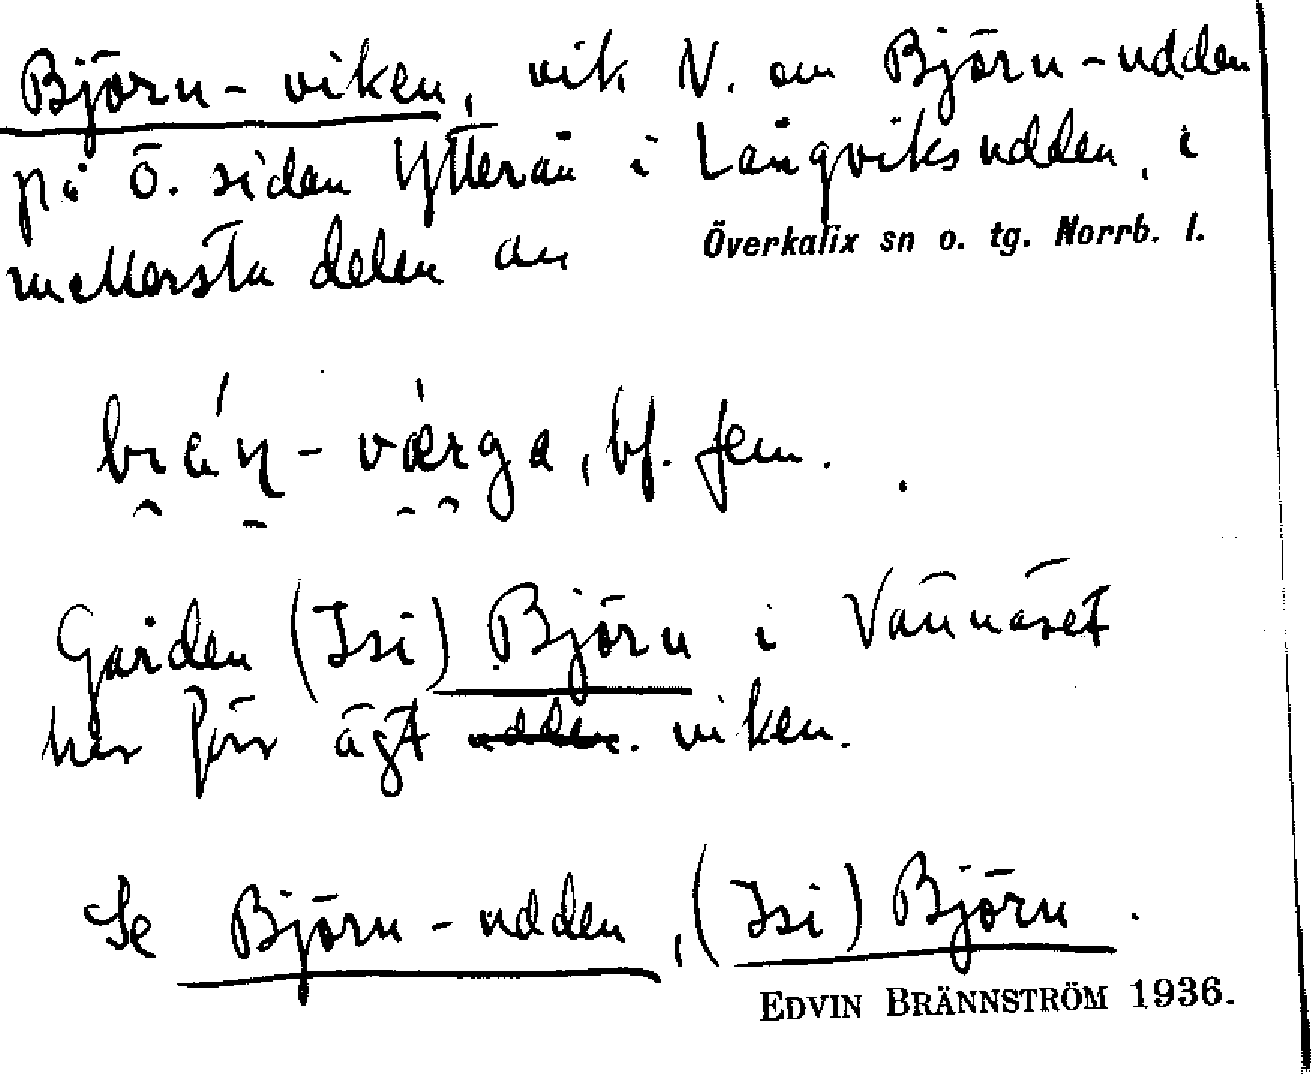 Björn-viken, vik N. om Björn-udden
på ö. siden Ytterån i Långviksudden, i
mellersta delen av Överkalix sn o. tg. Norrb. l.
brá̯n̠-væ̯r̯ga, bf. fem.
Gården (Isi) Björn i Vännäset
har förr ägt udden. viken.
Se Björn-udden, (Isi) Björn.
EDVIN BRÄNNSTRÖM 1936.